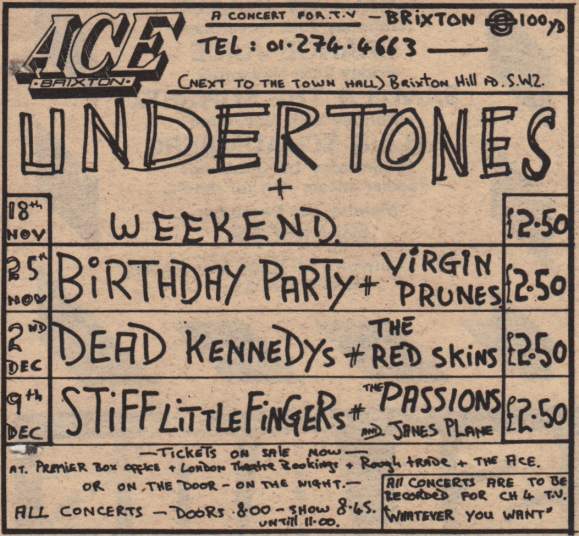 ACE
BRIXTON
A CONCERT FOR T.V – BRIXTON 100 YD
TEL: 01·274·4663
(NEXT TO THE TOWN HALL) Brixton Hill RD. S.W2.
UNDERTONES
+
18th NOV WEEKEND. £2.50
25th NOV BiRTHDAY PARTY + ViRGIN PRUNES £2.50
2ND DEC DEAD KENNEDYS + THE RED SKINS £2.50
9th DEC STiFF LiTTLE FiNGERS + THE PASSIONS AND JANES PLANE £2.50
— TICKETS ON SALE NOW —
AT. PREMIER BOX OFFICE + LONDON THEATRE BOOKINGS + ROUGH TRADE + THE ACE.
OR ON THE DOOR – ON THE NIGHT. –
ALL CONCERTS – DOORS 8·00 – SHOW 8·45.
UNTIll 11·00.
All CONCERTS ARE TO BE
RECORDED FOR CH4 T.V.
"WHATEVER YOU WANT"